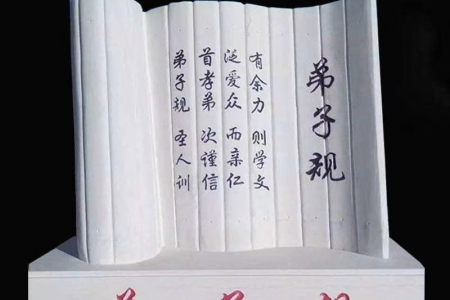 弟子规
弟子规 圣人训
首孝弟 次谨信
泛爱众 而亲仁
有余力 则学文